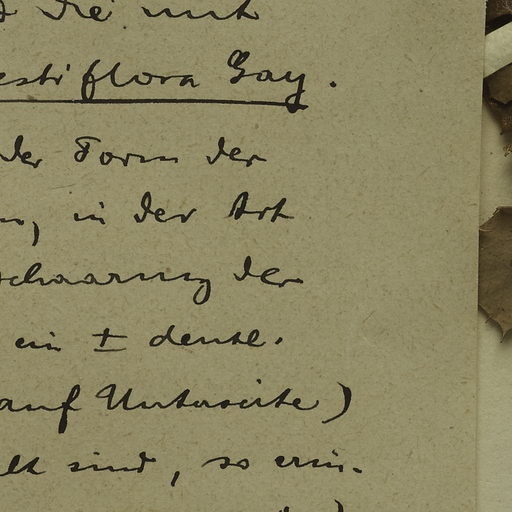 die mit
estiflora Gay.
der Form der
in der Art
schaarung der
ein ± deutl.
auf Unterseite)
lt sind, so erin-